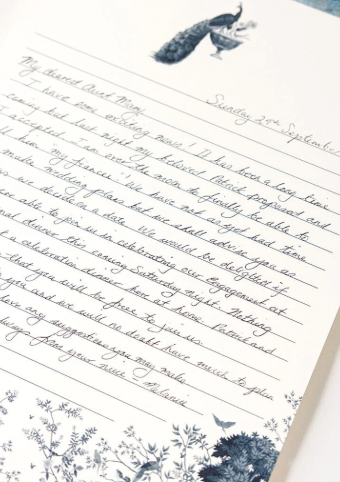 Sunday 29th September
My dearest Aunt Mary,
I have some exciting news! It has been a long time
coming but last night my beloved Patrick proposed and
I accepted. I am over the moon to finally be able to
call him "my fiancé". We have not as yet had time
make wedding plans but we shall advise you as
as we decide on a date. We would be delighted if
able to join us in celebrating our Engagement at
dinner this coming Saturday night. Nothing
a celebration dinner here at home. Patrick and
that you will be free to join us.
you and we will no doubt have much to plan
have any suggestions you may make
always from your niece - Melanie